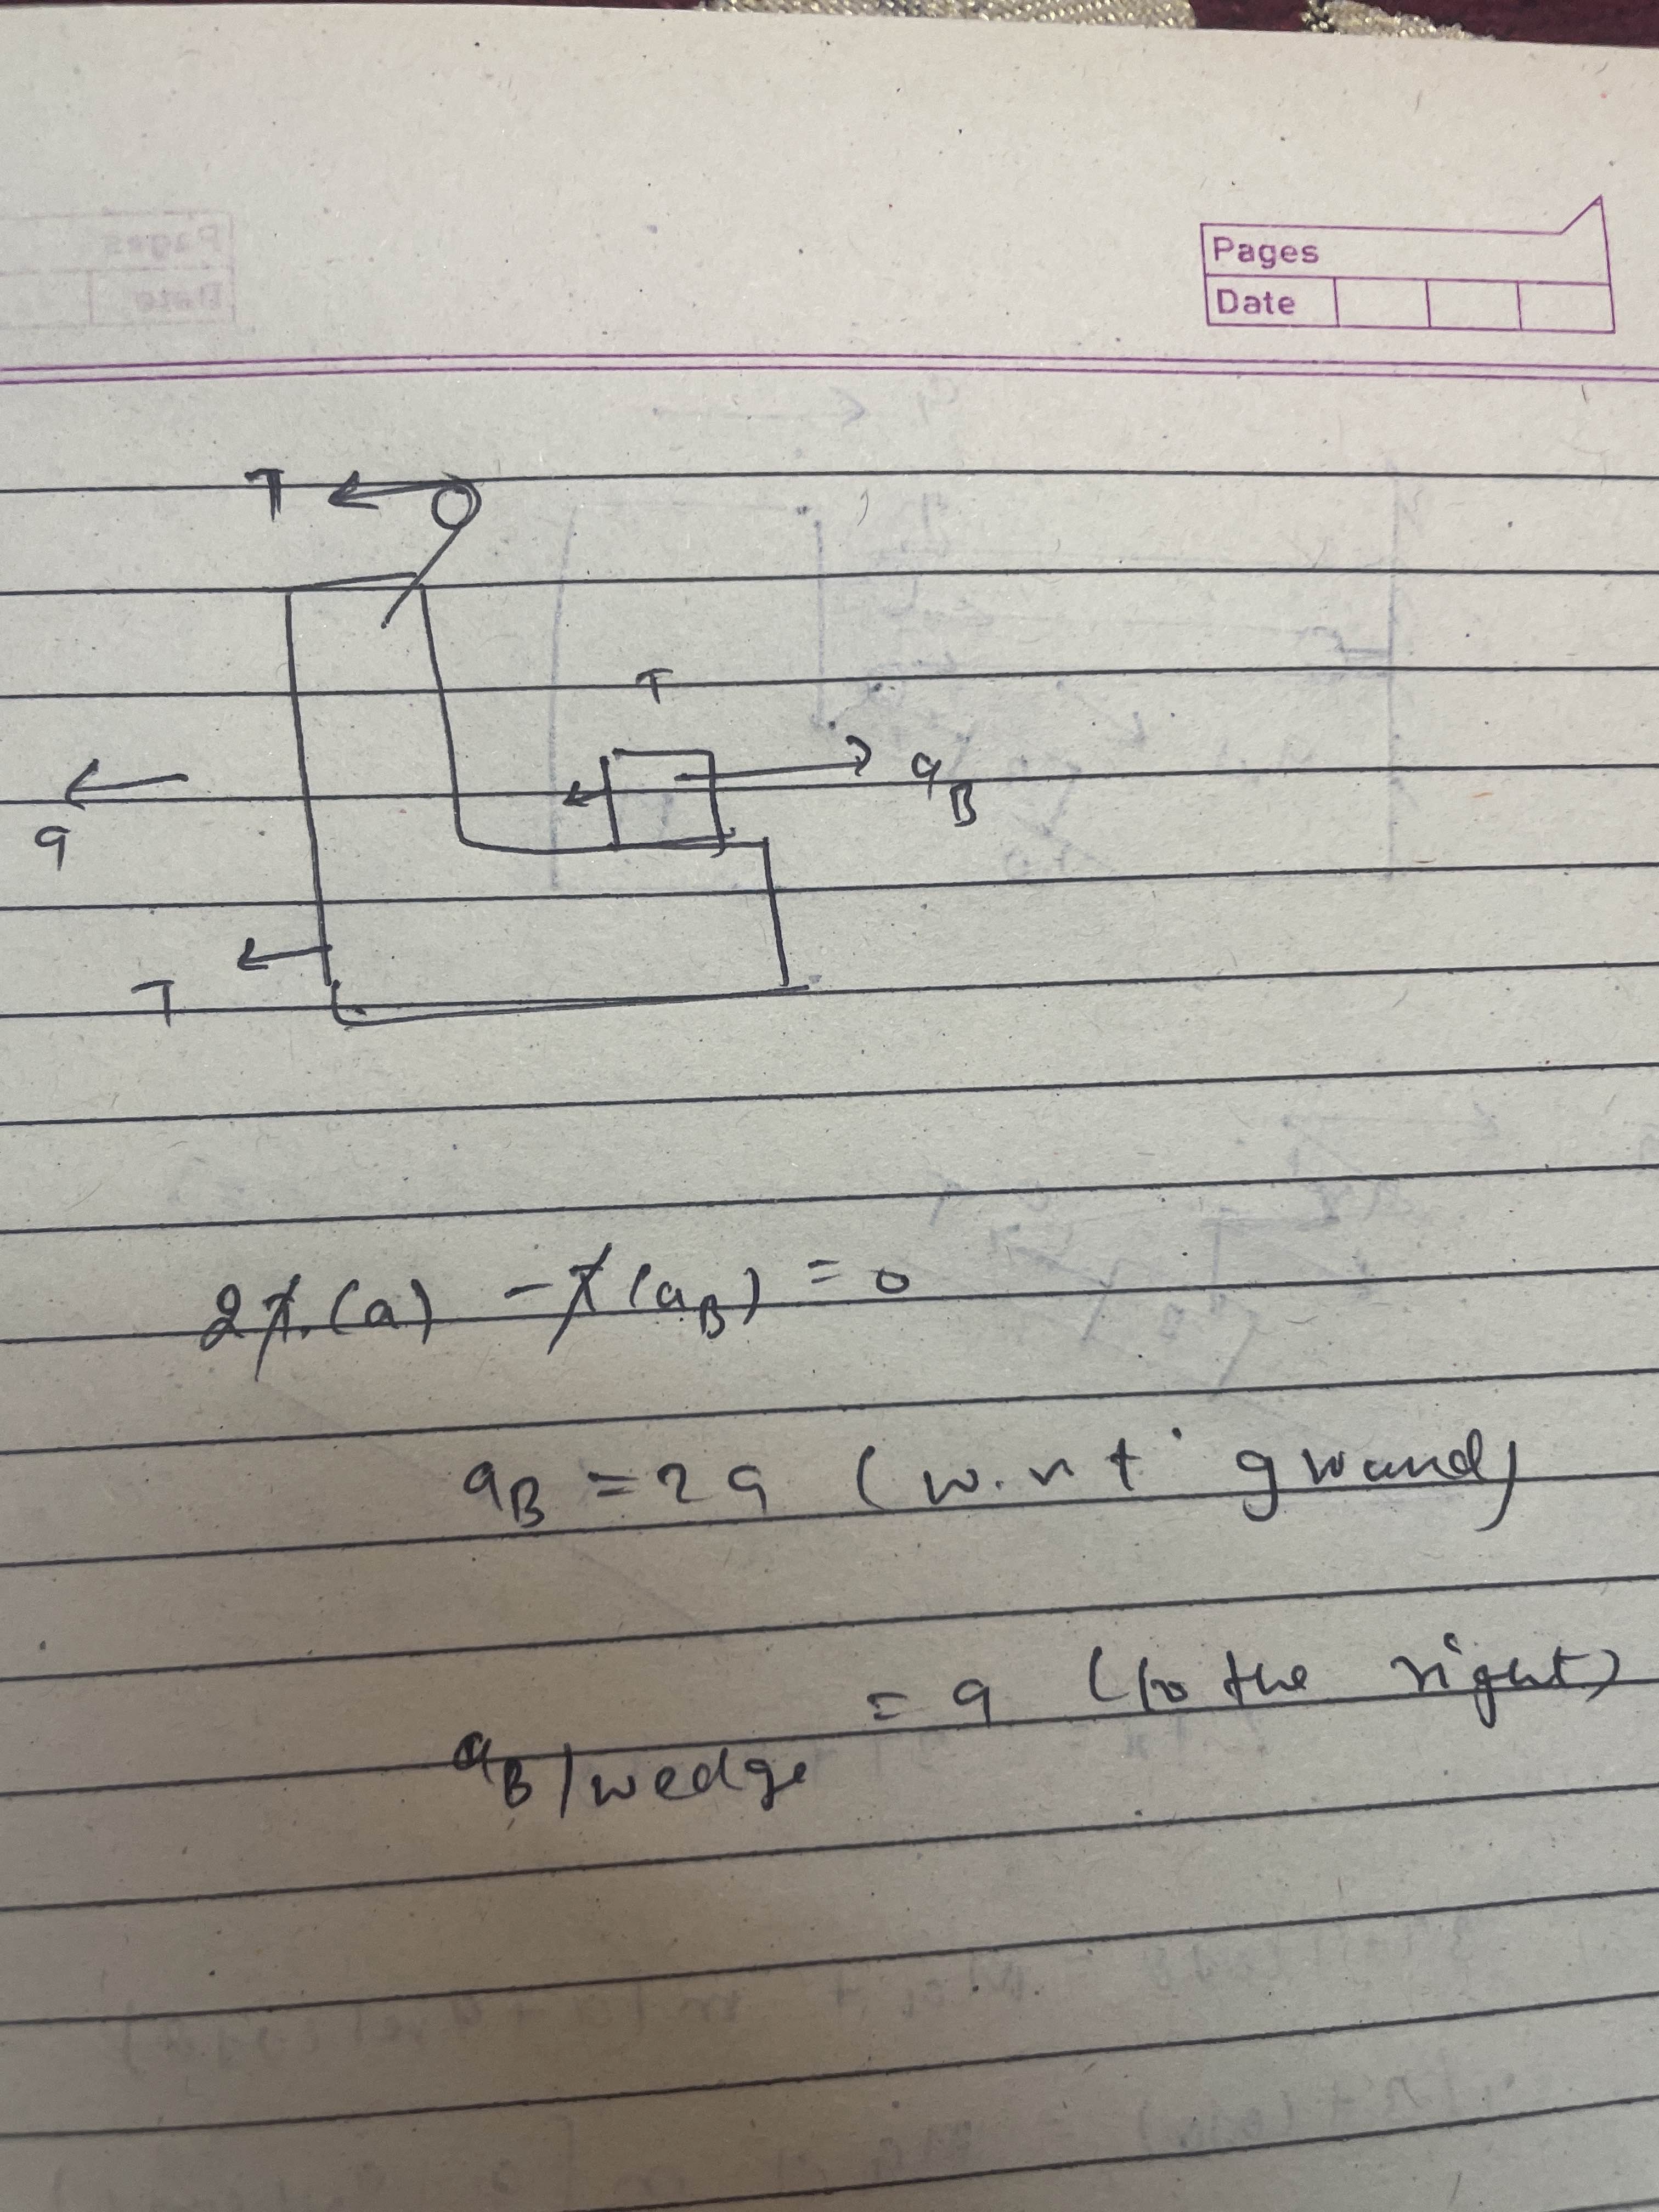 Pages
Date
T
T
a
a_B
T
2T.(a) - T(a_B) = 0
a_B = 2a (w.r.t ground)
a_B/wedge = a (to the right)